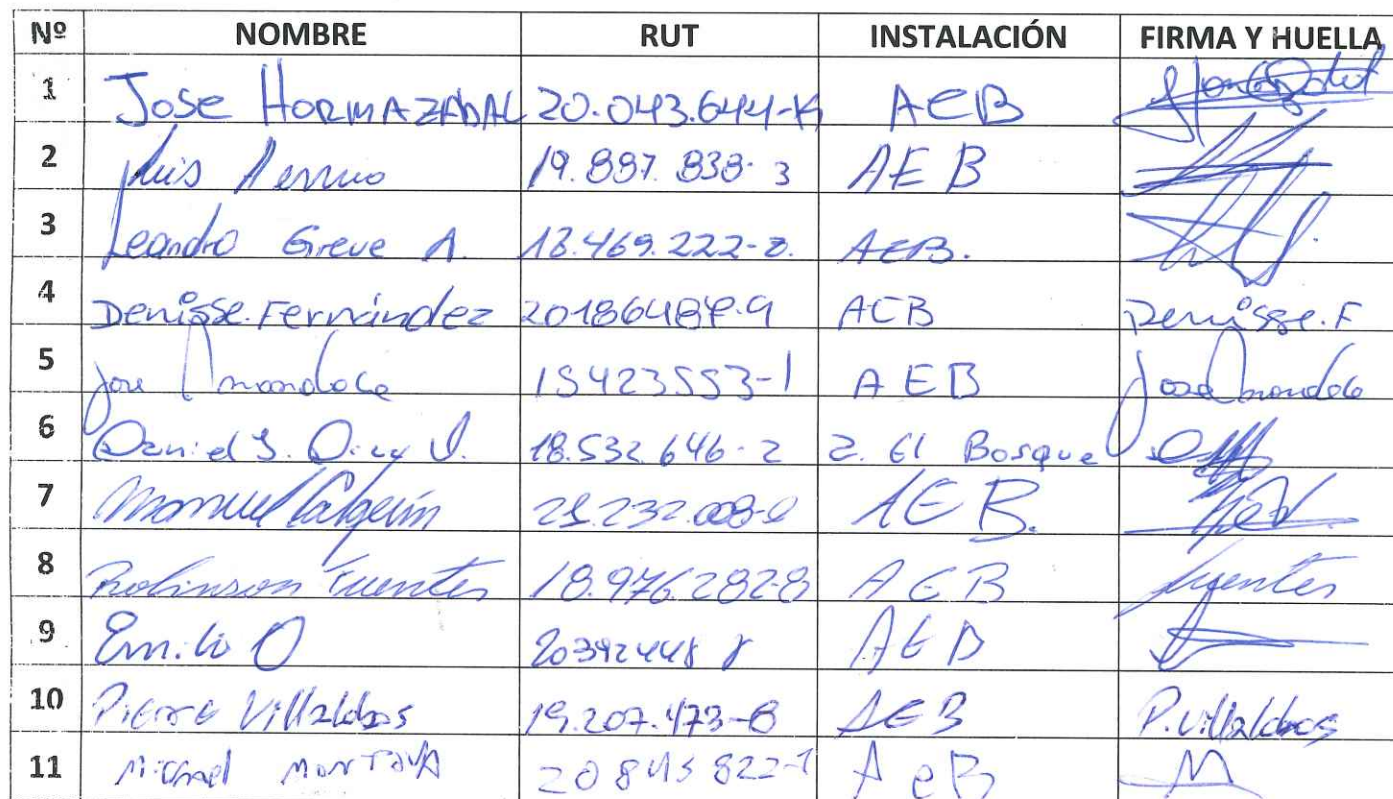 Nº NOMBRE RUT INSTALACIÓN FIRMA Y HUELLA
1 Jose HORMAZABAL 20.043.644-K AEB
2 Luis 19.887.838-3 AEB
3 Leandro Greve A. 18.469.222-2. AEB.
4 Denisse.Fernández 20186487-9 AEB Denisse.F
5 José 15423553-1 AEB José
6 Daniel S. Diaz V. 18.532.646-2 Z. El Bosque
7 Manuel 21.232.008-0 AEB.
8 Robinson Fuentes 18.976.282-8 AEB fuentes
9 Emilio O 20392448 8 AEB
10 Pierre Villalobos 19.207.473-8 AEB P.Villalobos
11 Michael MONTOYA 20845822-1 AeB M